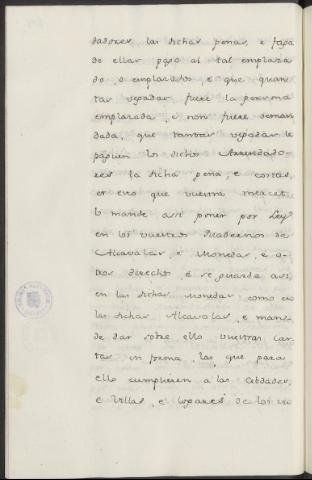 dadores las dichas penas, e faga
de ellas pago al tal emplaza
do, o emplazados, e que quan
tas vegadas fuere la persona
emplazada, e non fuere deman
dada, que tantas vegadas le
paguen los dichos Arrendado-
res la dicha pena, e costas,
es esto que vuestra merced
lo mande asi poner por Ley
en los vuestros Quadernos de
Alcavalas, e Monedas, e o-
tros derechos e se guarde asi
en las dichas monedas, como en
las dichas Alcavalas, e man-
de dar sobre ello vuestras car-
tas en forma, las que para
ello cumplieren a las Cibdades,
e Villas, e logares de los vu